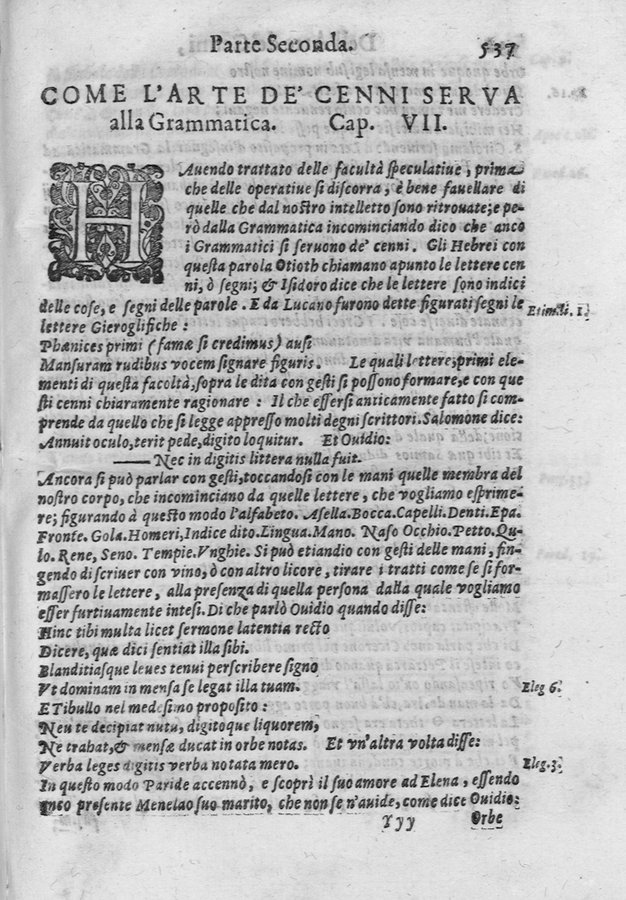 Parte Seconda. 537
COME L'ARTE DE' CENNI SERVA
alla Grammatica. Cap. VII.
HAuendo trattato delle facultà speculatiue, prima
che delle operatiue si discorra, è bene fauellare di
quelle che dal nostro intelletto sono ritrouate; e pe-
rò dalla Grammatica incominciando dico che anco
i Grammatici si seruono de' cenni. Gli Hebrei con
questa parola Otioth chiamano apunto le lettere cen
ni, ò segni; & Isidoro dice che le lettere sono indici
delle cose, e segni delle parole. E da Lucano furono dette figurati segni le
Etimili. 1.
lettere Gieroglifiche:
Phænices primi (famæ si credimus) ausi
Mansuram rudibus vocem signare figuris. Le quali lettere, primi ele-
menti di questa facoltà, sopra le dita con gesti si possono formare, e con que
sti cenni chiaramente ragionare: Il che essersi anticamente fatto si com-
prende da quello che si legge appresso molti degni scrittori. Salomone dice:
Annuit oculo, terit pede, digito loquitur. Et Ouidio:
—— Nec in digitis littera nulla fuit.
Ancora si può parlar con gesti, toccandosi con le mani quelle membra del
nostro corpo, che incominciano da quelle lettere, che vogliamo esprime-
re; figurando à questo modo l'alfabeto. Asella. Bocca. Capelli. Denti. Epa.
Fronte. Gola. Homeri, Indice dito. Lingua. Mano. Naso Occhio. Petto. Qu-
lo. Rene, Seno. Tempie. Vnghie. Si può etiandio con gesti delle mani, fin-
gendo di scriuer con vino, ò con altro licore, tirare i tratti come se si for-
massero le lettere, alla presenza di quella persona dalla quale vogliamo
esser furtiuamente intesi. Di che parlò Ouidio quando disse:
Hinc tibi multa licet sermone latentia recto
Dicere, quæ dici sentiat illa sibi.
Blanditiasque leues tenui perscribere signo
Vt dominam in mensa se legat illa tuam.
Eleg 6.
E Tibullo nel medesimo proposito:
Neu te decipiat nutu, digitoque liquorem,
Ne trahat, & mensæ ducat in orbe notas. Et vn'altra volta disse:
Verba leges digitis verba notata mero.
Eleg. 3.
In questo modo Paride accennò, e scoprì il suo amore ad Elena, essendo
anco presente Menelao suo marito, che non se n'auide, come dice Ouidio:
Yyy Orbe